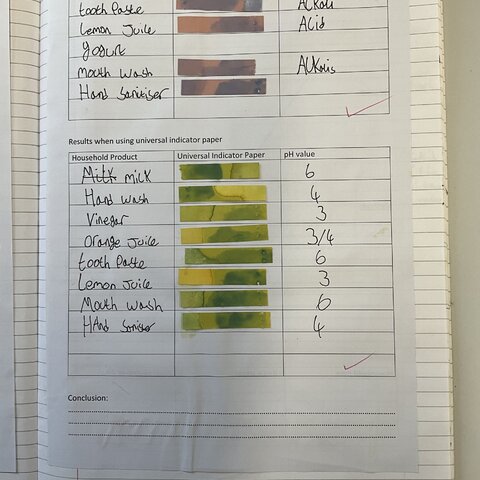 tooth Paste ALKali
Lemon Juice ACid
Yogurt
Mouth Wash ALKalis
Hand Sanitiser
Results when using universal indicator paper
Household Product Universal Indicator Paper pH value
milk 6
Hand wash 4
Vinegar 3
Orange Juice 3/4
tooth Paste 6
Lemon Juice 3
Mouth Wash 6
HAnd Sanitiser 4
Conclusion: